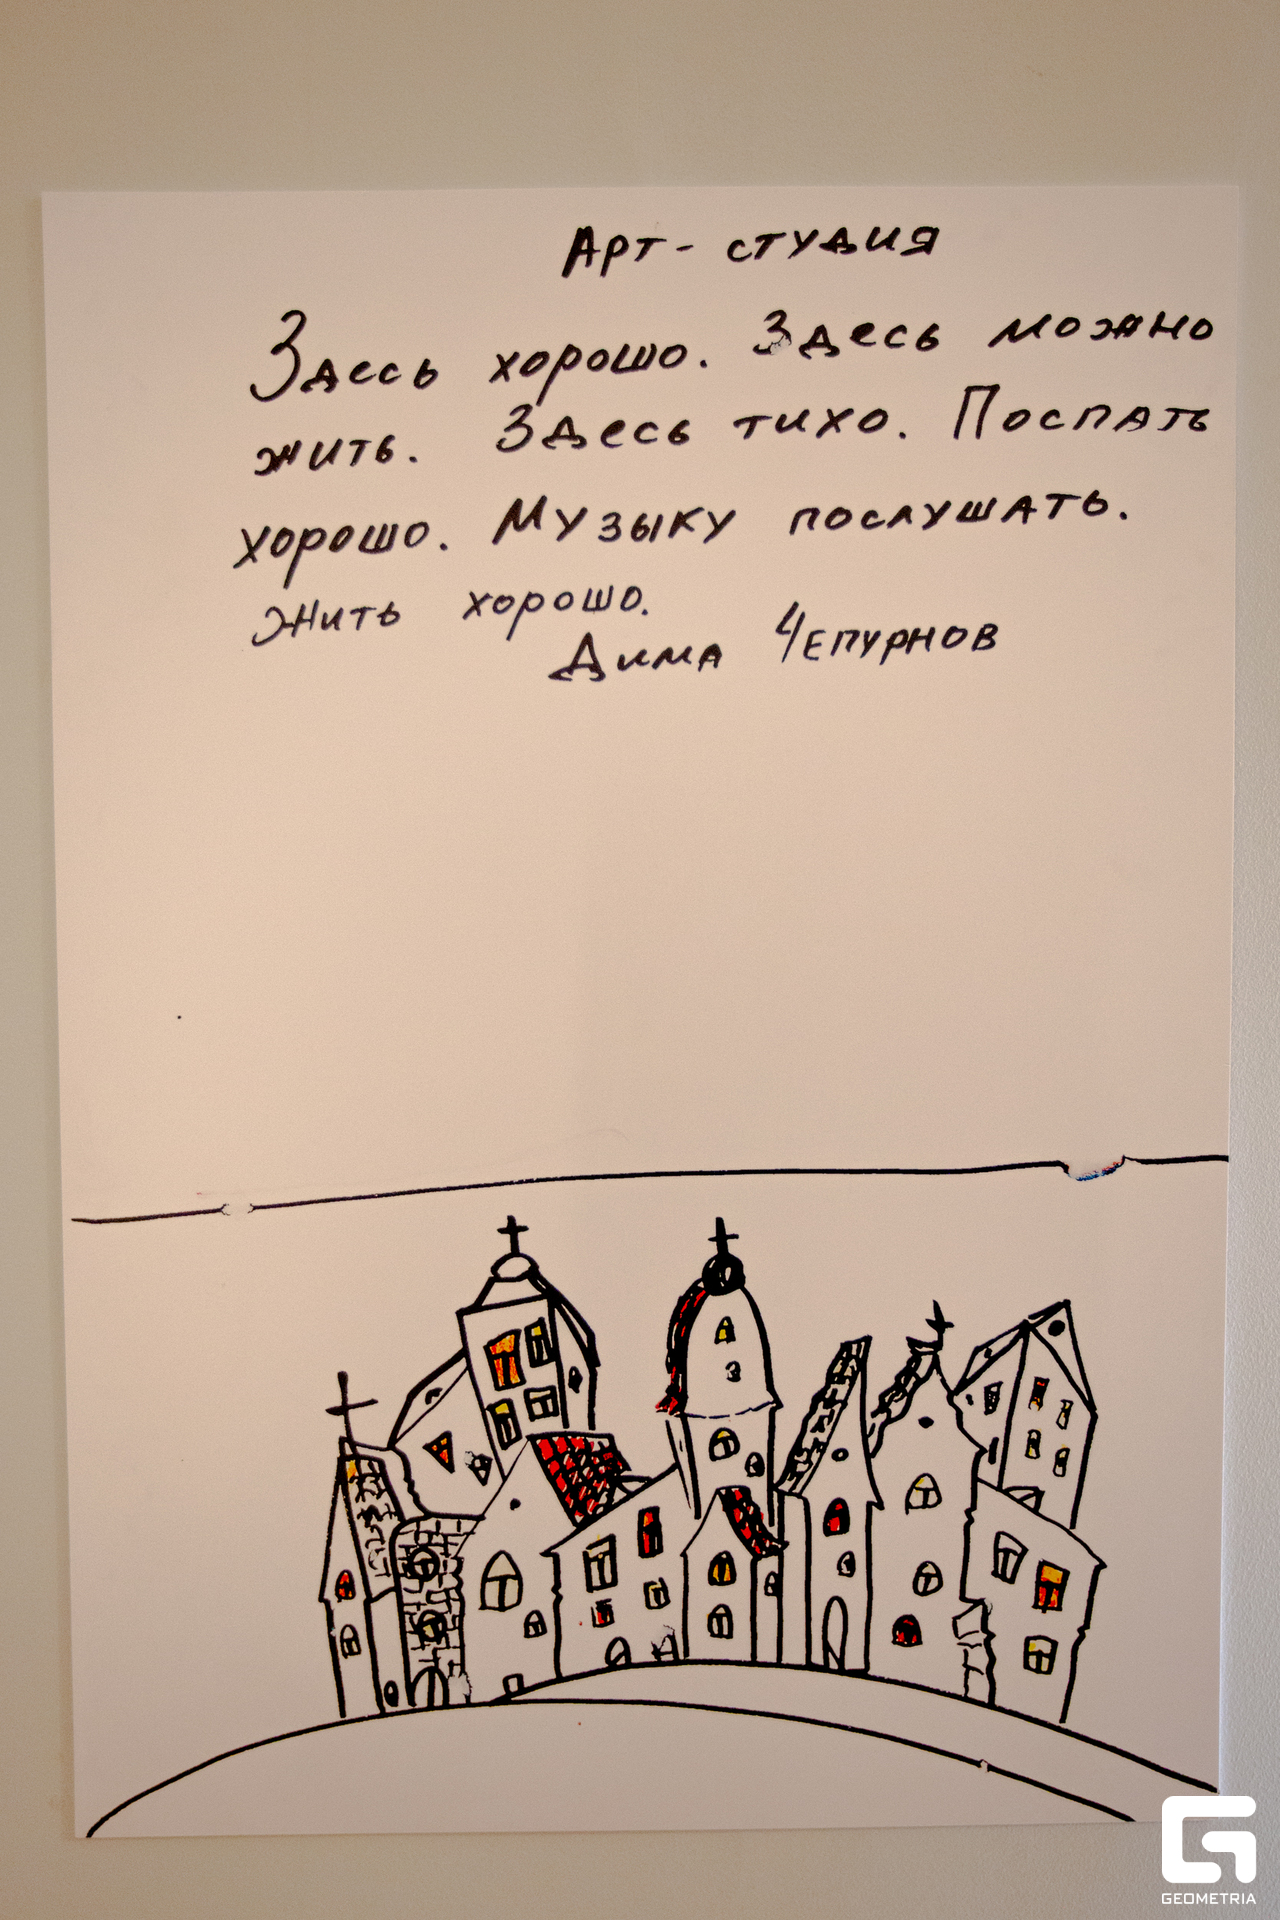 Арт-студия
Здесь хорошо. Здесь можно
жить. Здесь тихо. Поспать
хорошо. Музыку послушать.
Жить хорошо.
Дима Чепурнов
GEOMETRIA